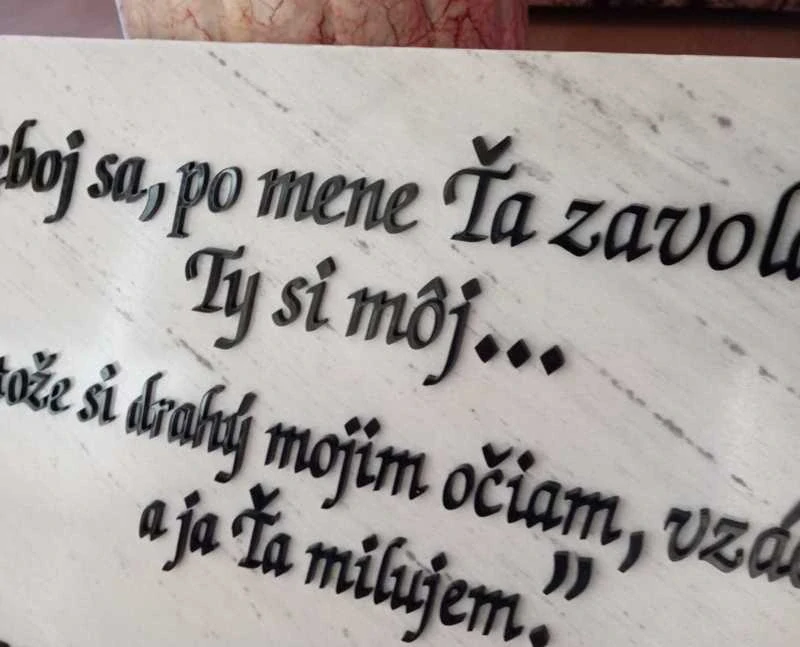 eboj sa, po mene Ťa zavola
Ty si môj...
tože si drahý mojim očiam, vzá
a ja Ťa milujem."